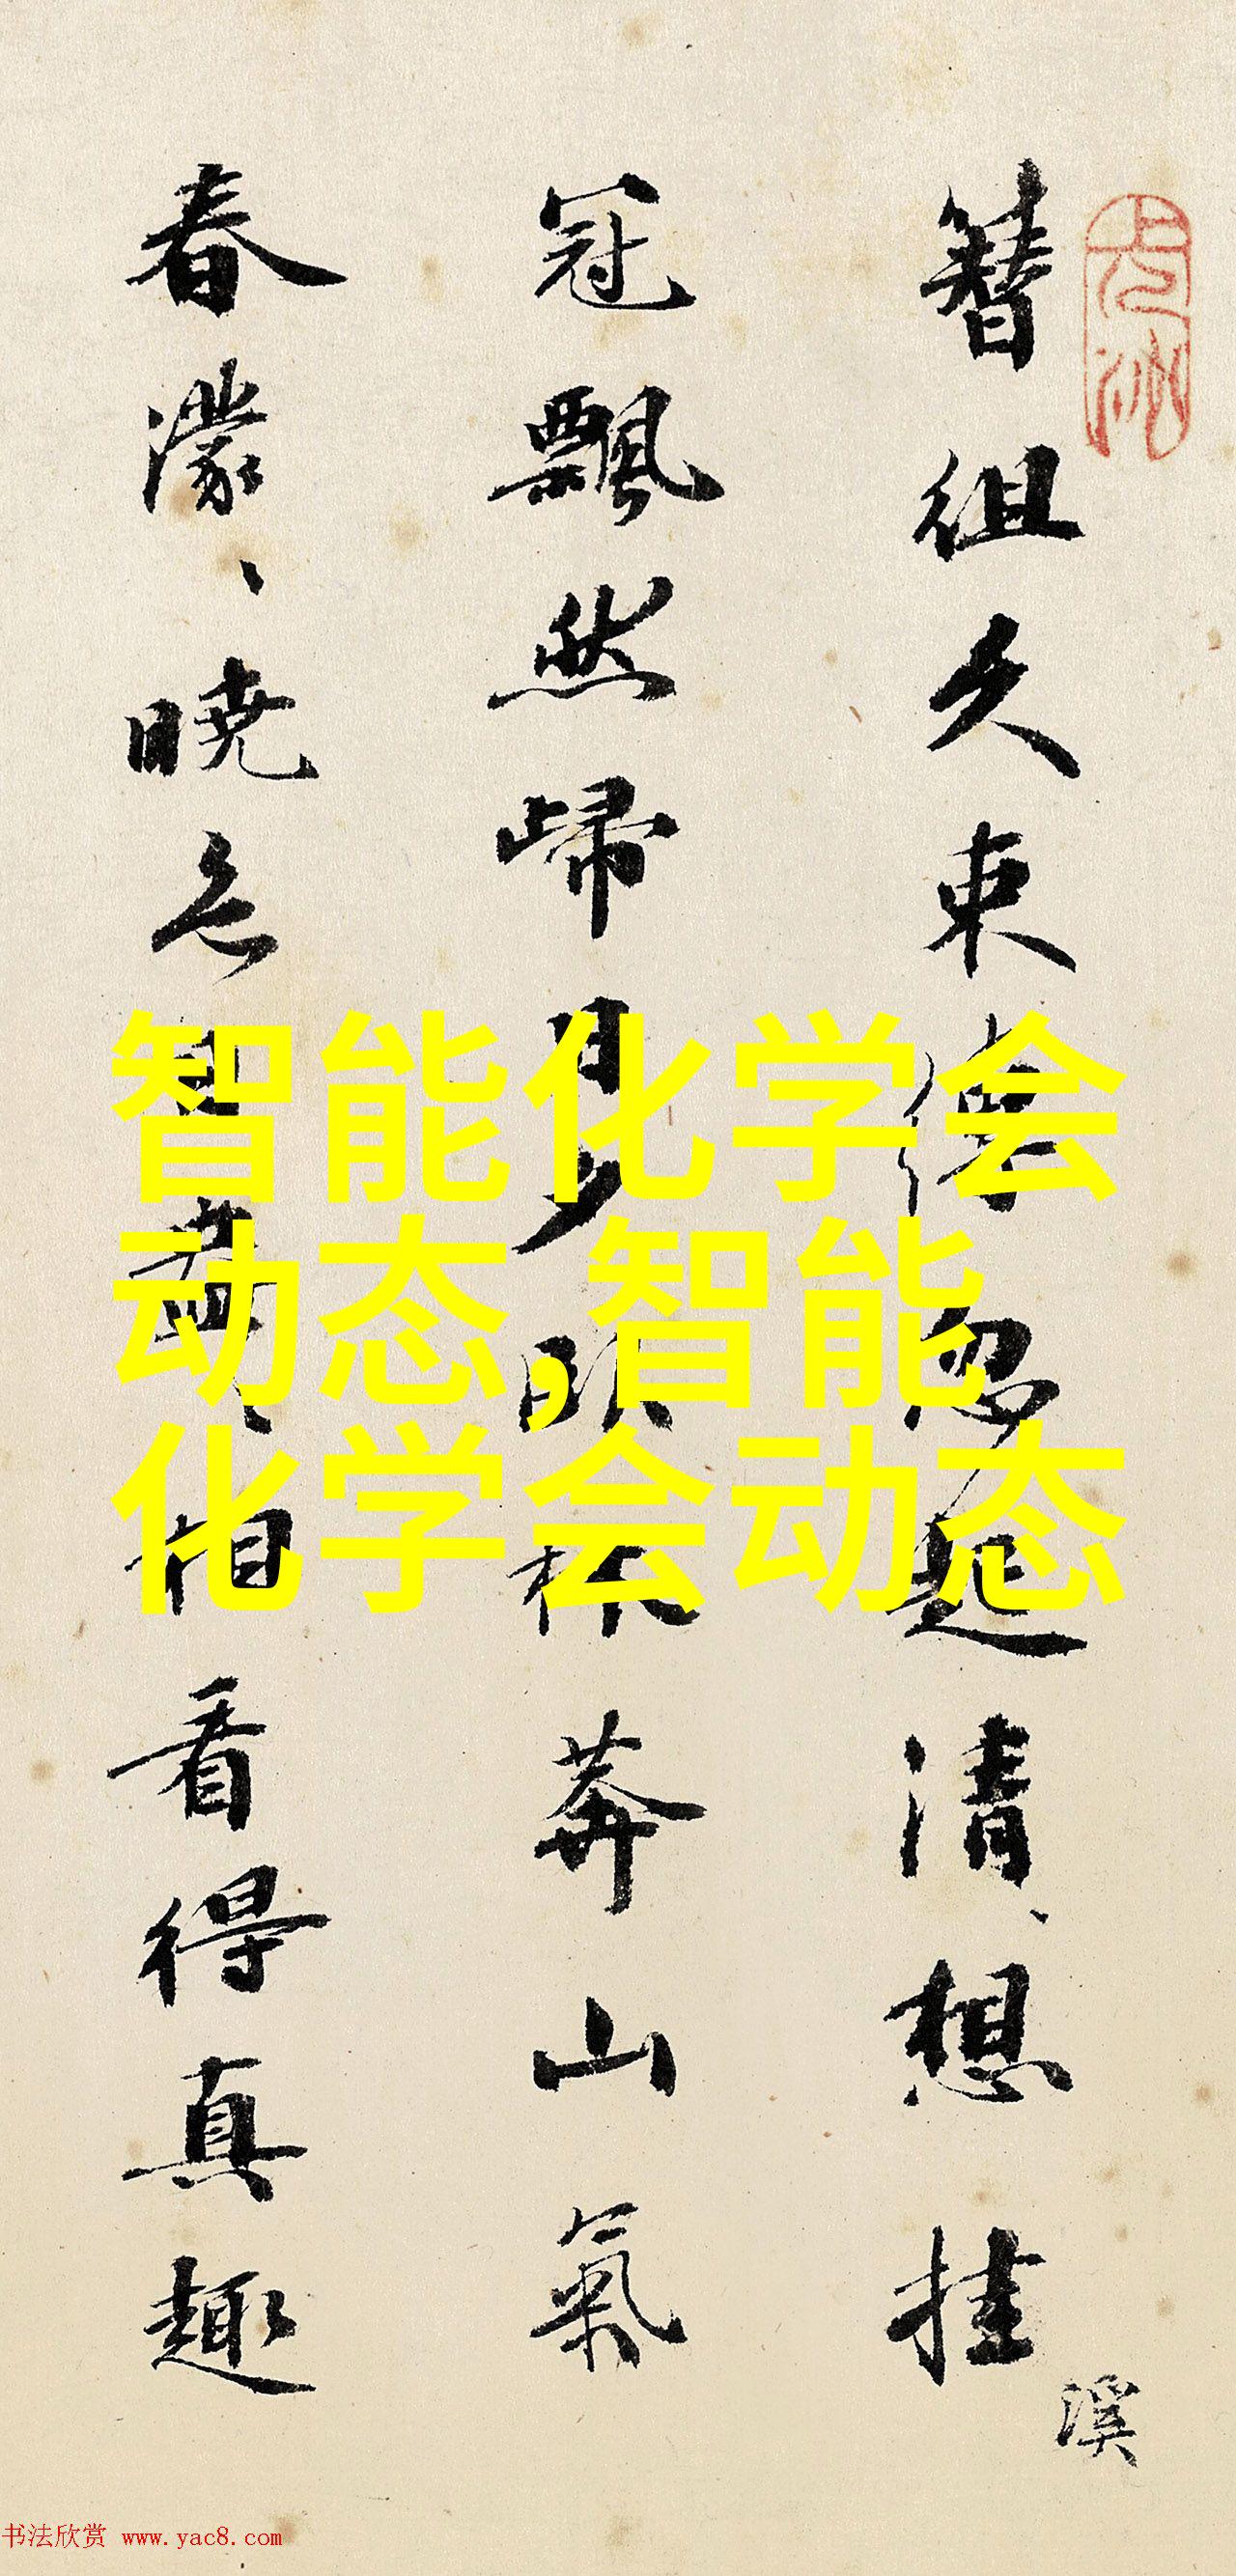 簪組久束忽清、想挂
溪
冠飄然歸日夕臥林莽山氣
春濛、曉色相看得真趣
智能化学会
动态,智能
化学会动态
书法欣赏 www.yac8.com